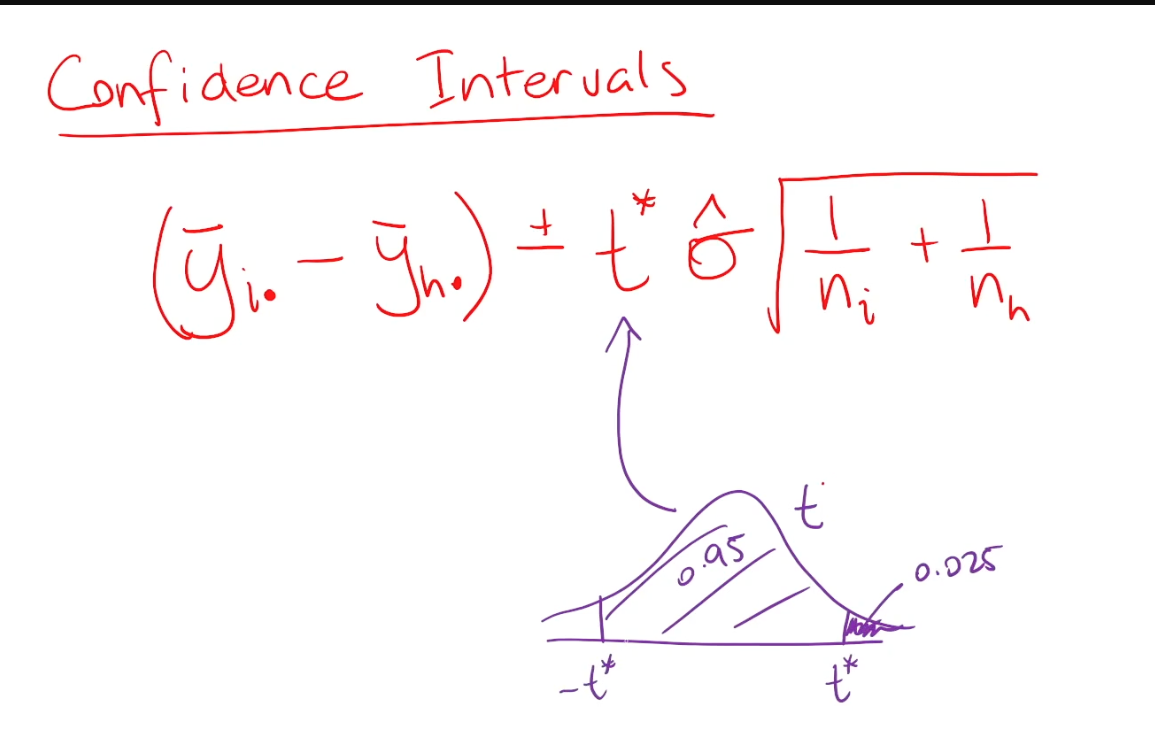 Confidence Intervals
(ȳᵢ. − ȳₕ.) ± t* σ̂ √(1/nᵢ + 1/nₕ)
t
0.95
0.025
-t* t*